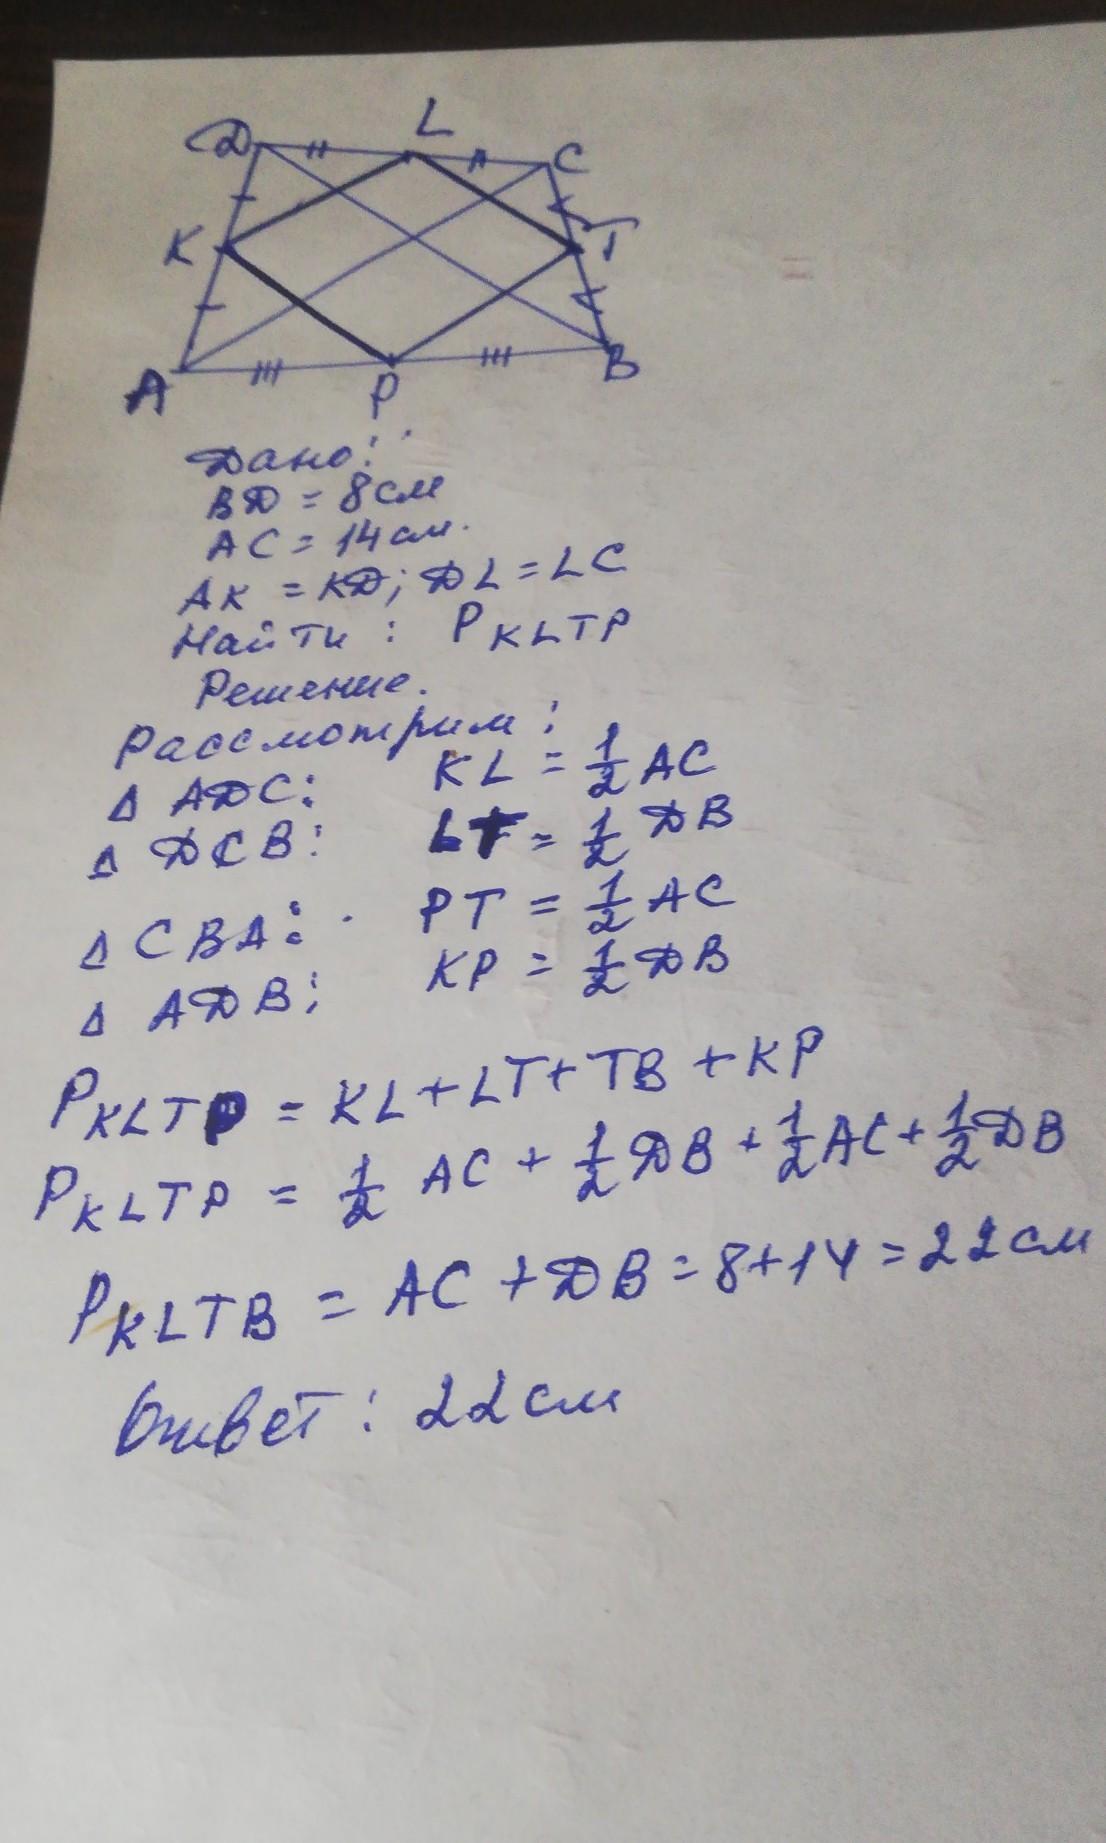 D L C
K T
A P B
Дано:
BD = 8 см
AC = 14 см.
AK = KD; DL = LC
Найти: P KLTP
Решение.
Рассмотрим:
Δ ADC: KL = 1/2 AC
Δ DCB: LT = 1/2 DB
Δ CBA: PT = 1/2 AC
Δ ADB; KP = 1/2 DB
P KLTP = KL + LT + TB + KP
P KLTP = 1/2 AC + 1/2 DB + 1/2 AC + 1/2 DB
P KLTB = AC + DB = 8 + 14 = 22 см
Ответ: 22 см